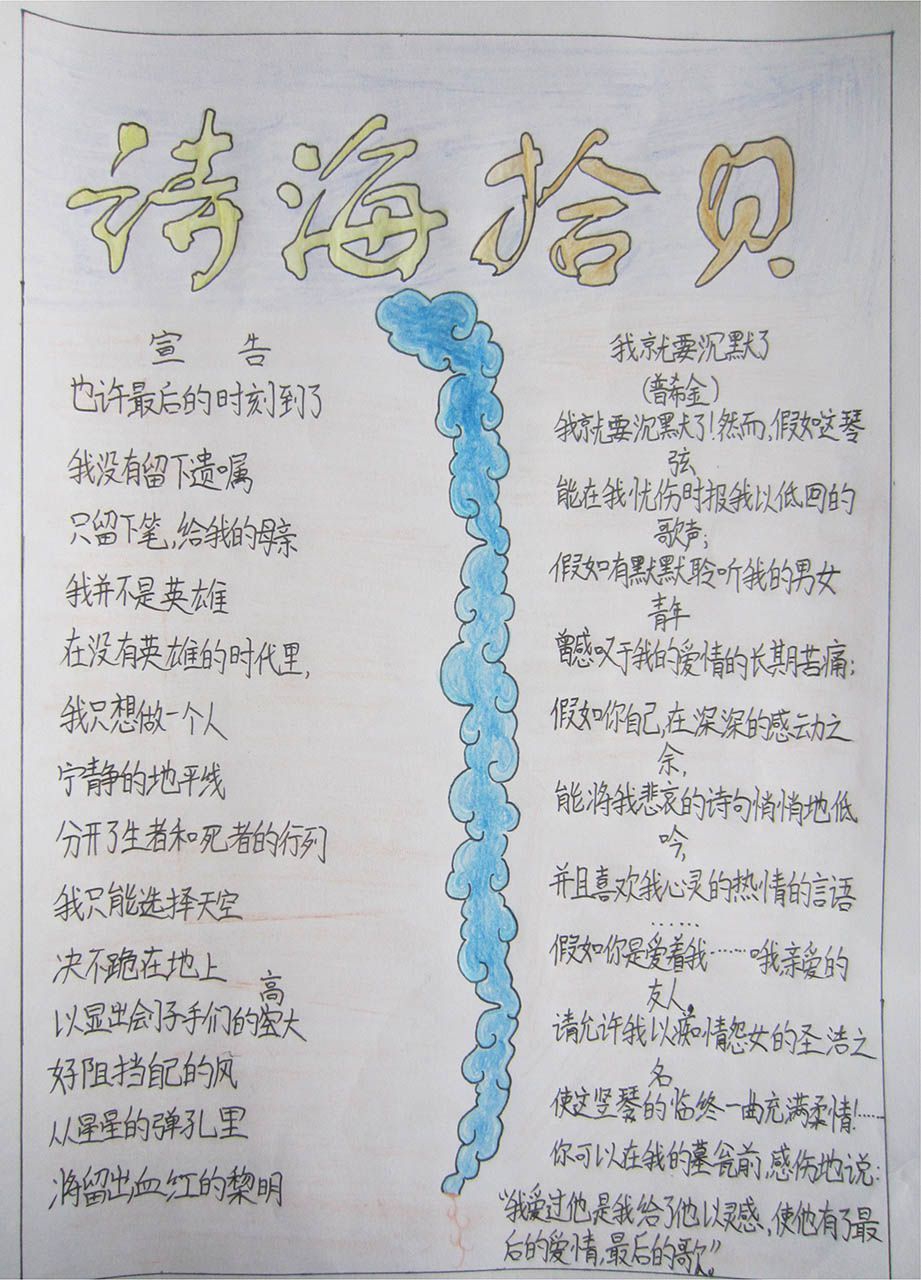 诗海拾贝
宣 告
也许最后的时刻到了
我没有留下遗嘱
只留下笔,给我的母亲
我并不是英雄
在没有英雄的时代里,
我只想做一个人
宁静的地平线
分开了生者和死者的行列
我只能选择天空
决不跪在地上
以显出刽子手们的高大
好阻挡自己的风
从星星的弹孔里
将留出血红的黎明
我就要沉默了
(普希金)
我就要沉默了!然而,假如这琴
弦
能在我忧伤时报我以低回的
歌声;
假如有默默聆听我的男女
青年
曾感叹于我的爱情的长期苦痛;
假如你自己,在深深的感动之
余,
能将我悲哀的诗句悄悄地低
吟,
并且喜欢我心灵的热情的言语
……
假如你是爱着我……哦亲爱的
友人,
请允许我以痴情怨女的圣洁之
名
使这竖琴的临终一曲充满柔情!……
你可以在我的墓瓮前,感伤地说:
“我爱过他是我给了他以灵感、使他有了最
后的爱情,最后的歌。”